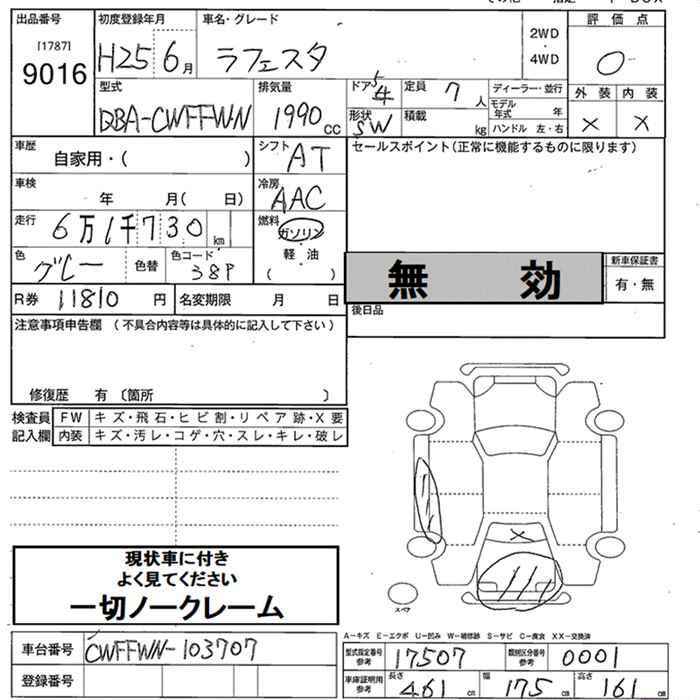 出品番号
[1787]
9016
初度登録年月
H25 6月
車名・グレード
ラフェスタ
2WD
・
4WD
評価点
0
外装 内装
× ×
型式
DBA-CWFFWN
排気量
1990 cc
ドア 5
4
形状
SW
定員 7 人
積載 kg
ディーラー・並行
モデル年式 年
ハンドル 左・右
車歴
自家用・( )
シフト AT
セールスポイント(正常に機能するものに限ります)
車検
年 月( 日)
冷房
AAC
走行
6万1千730km
燃料
ガソリン
軽・油
( )
色
グレー
色替
色コード
38P
無 効
新車保証書
有・無
R券 11810 円
名変期限 月 日
後日品
注意事項申告欄 (不具合内容等は具体的に記入して下さい)
修復歴 有 〔箇所 〕
検査員記入欄
FW キズ・飛石・ヒビ割・リペア跡・X要
内装 キズ・汚レ・コゲ・穴・スレ・キレ・破レ
現状車に付き
よく見てください
一切ノークレーム
×
スペア
A-キズ E-エクボ U-凹み W-補修跡 S-サビ C-腐食 XX-交換済
車台番号 CWFFWN-103707
登録番号
型式指定番号参考 17507
類別区分番号参考 0001
車庫証明用参考
長さ 461 cm
幅 175 cm
高さ 161 cm